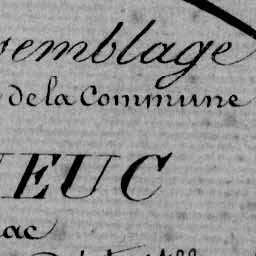 semblage
de la Commune
EUC
ac